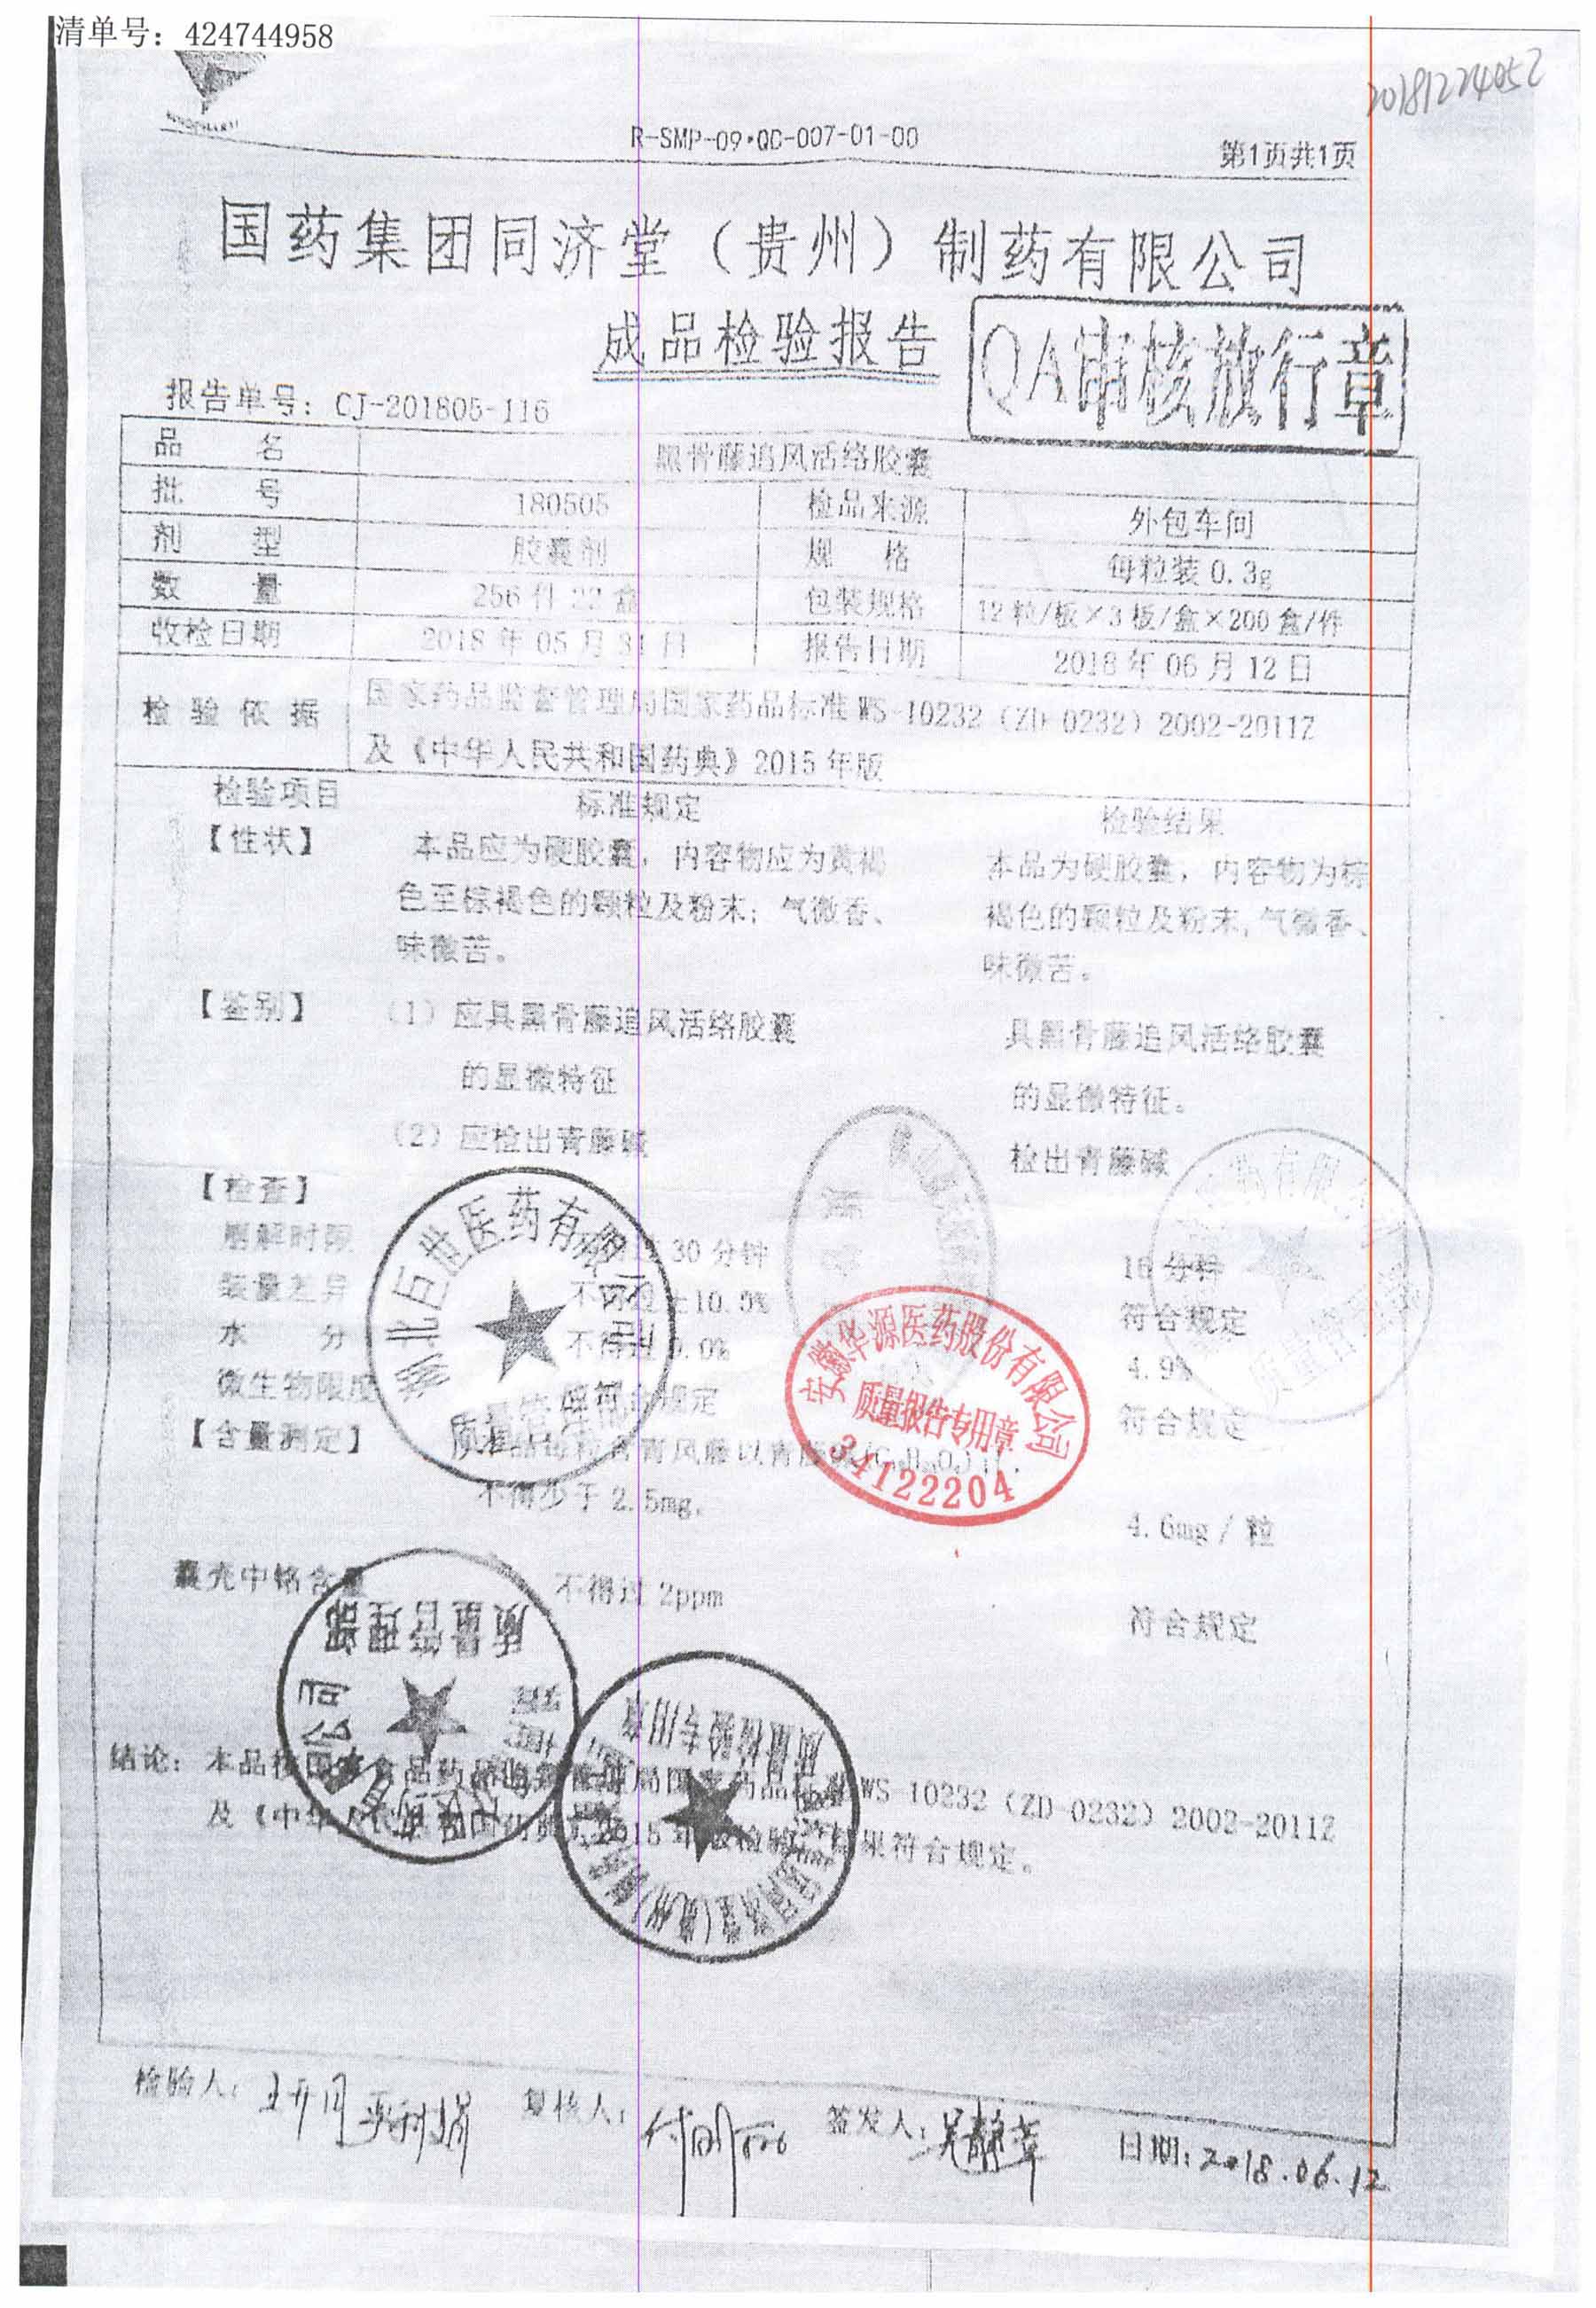 清单号：424744958
20181224052
R-SMP-09·QC-007-01-00
第1页共1页
国药集团同济堂（贵州）制药有限公司
成品检验报告
QA审核放行章
报告单号：CJ-201805-116
品 名 黑骨藤追风活络胶囊
批 号 180505 检品来源 外包车间
剂 型 胶囊剂 规 格 每粒装0.3g
数 量 256件22盒 包装规格 12粒/板×3板/盒×200盒/件
收检日期 2018年05月31日 报告日期 2018年06月12日
检验依据 国家药品监督管理局国家药品标准WS-10232（ZD-0232）2002-2011Z
及《中华人民共和国药典》2015年版
检验项目 标准规定 检验结果
【性状】 本品应为硬胶囊，内容物应为黄褐 本品为硬胶囊，内容物为棕
色至棕褐色的颗粒及粉末；气微香、 褐色的颗粒及粉末,气微香、
味微苦。 味微苦。
【鉴别】 （1）应具黑骨藤追风活络胶囊 具黑骨藤追风活络胶囊
的显微特征 的显微特征。
（2）应检出青藤碱 检出青藤碱
【检查】
崩解时限 30分钟 16分钟
装量差异 不得过±10.0% 符合规定
水 分 不得过9.0% 4.9%
微生物限度 应符合规定 符合规定
【含量测定】 本品每粒含青风藤以青藤碱
不得少于2.5mg. 4.6mg/粒
囊壳中铬含量 不得过2ppm 符合规定
湖北巨世医药有限公司
质量管理部
安徽华源医药股份有限公司
质量报告专用章
34122204
质量管理部
质量检验专用章
结论：本品按国家食品药品监督管理局国家药品标准WS-10232（ZD-0232）2002-2011Z
及《中华人民共和国药典》2015年版检验，结果符合规定。
检验人： 复核人： 签发人： 日期：2018.06.12